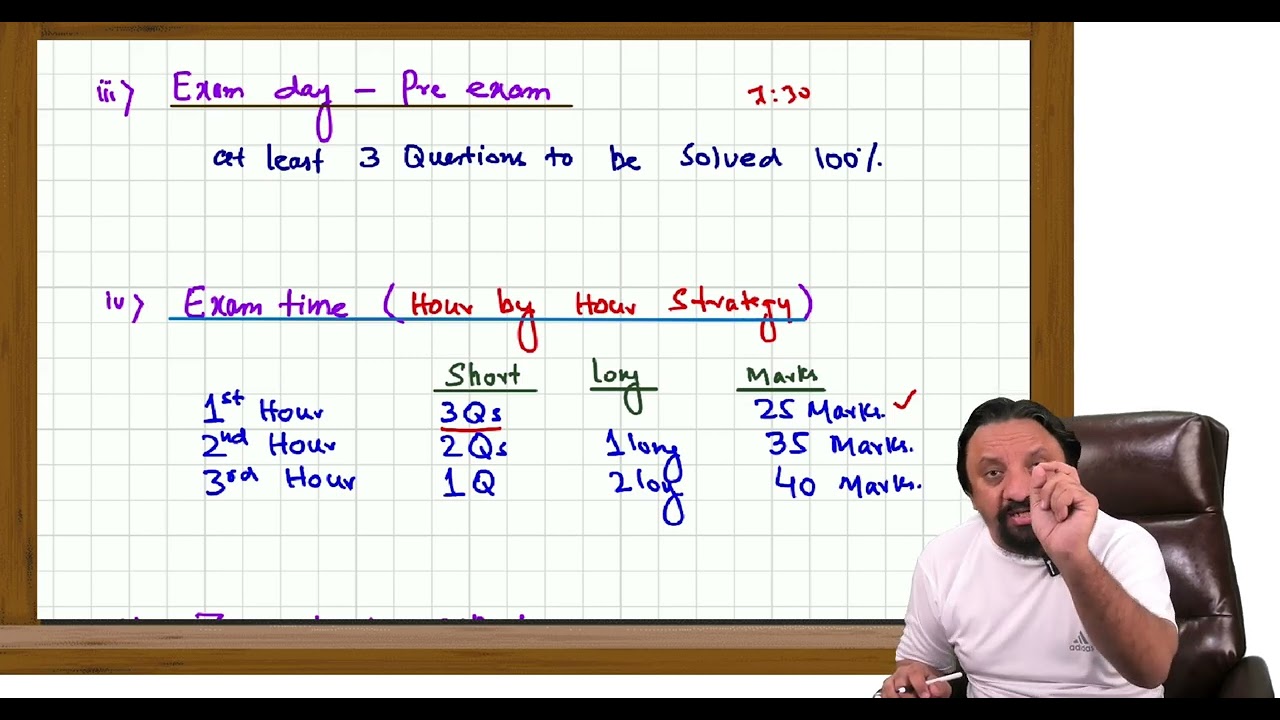 iii) Exam day - Pre exam 7:30
at least 3 Questions to be Solved 100%.
iv) Exam time (Hour by Hour Strategy)
Short long Marks
1st Hour 3Qs 25 Marks. ✓
2nd Hour 2Qs 1long 35 Marks.
3rd Hour 1Q 2long 40 Marks.
adidas